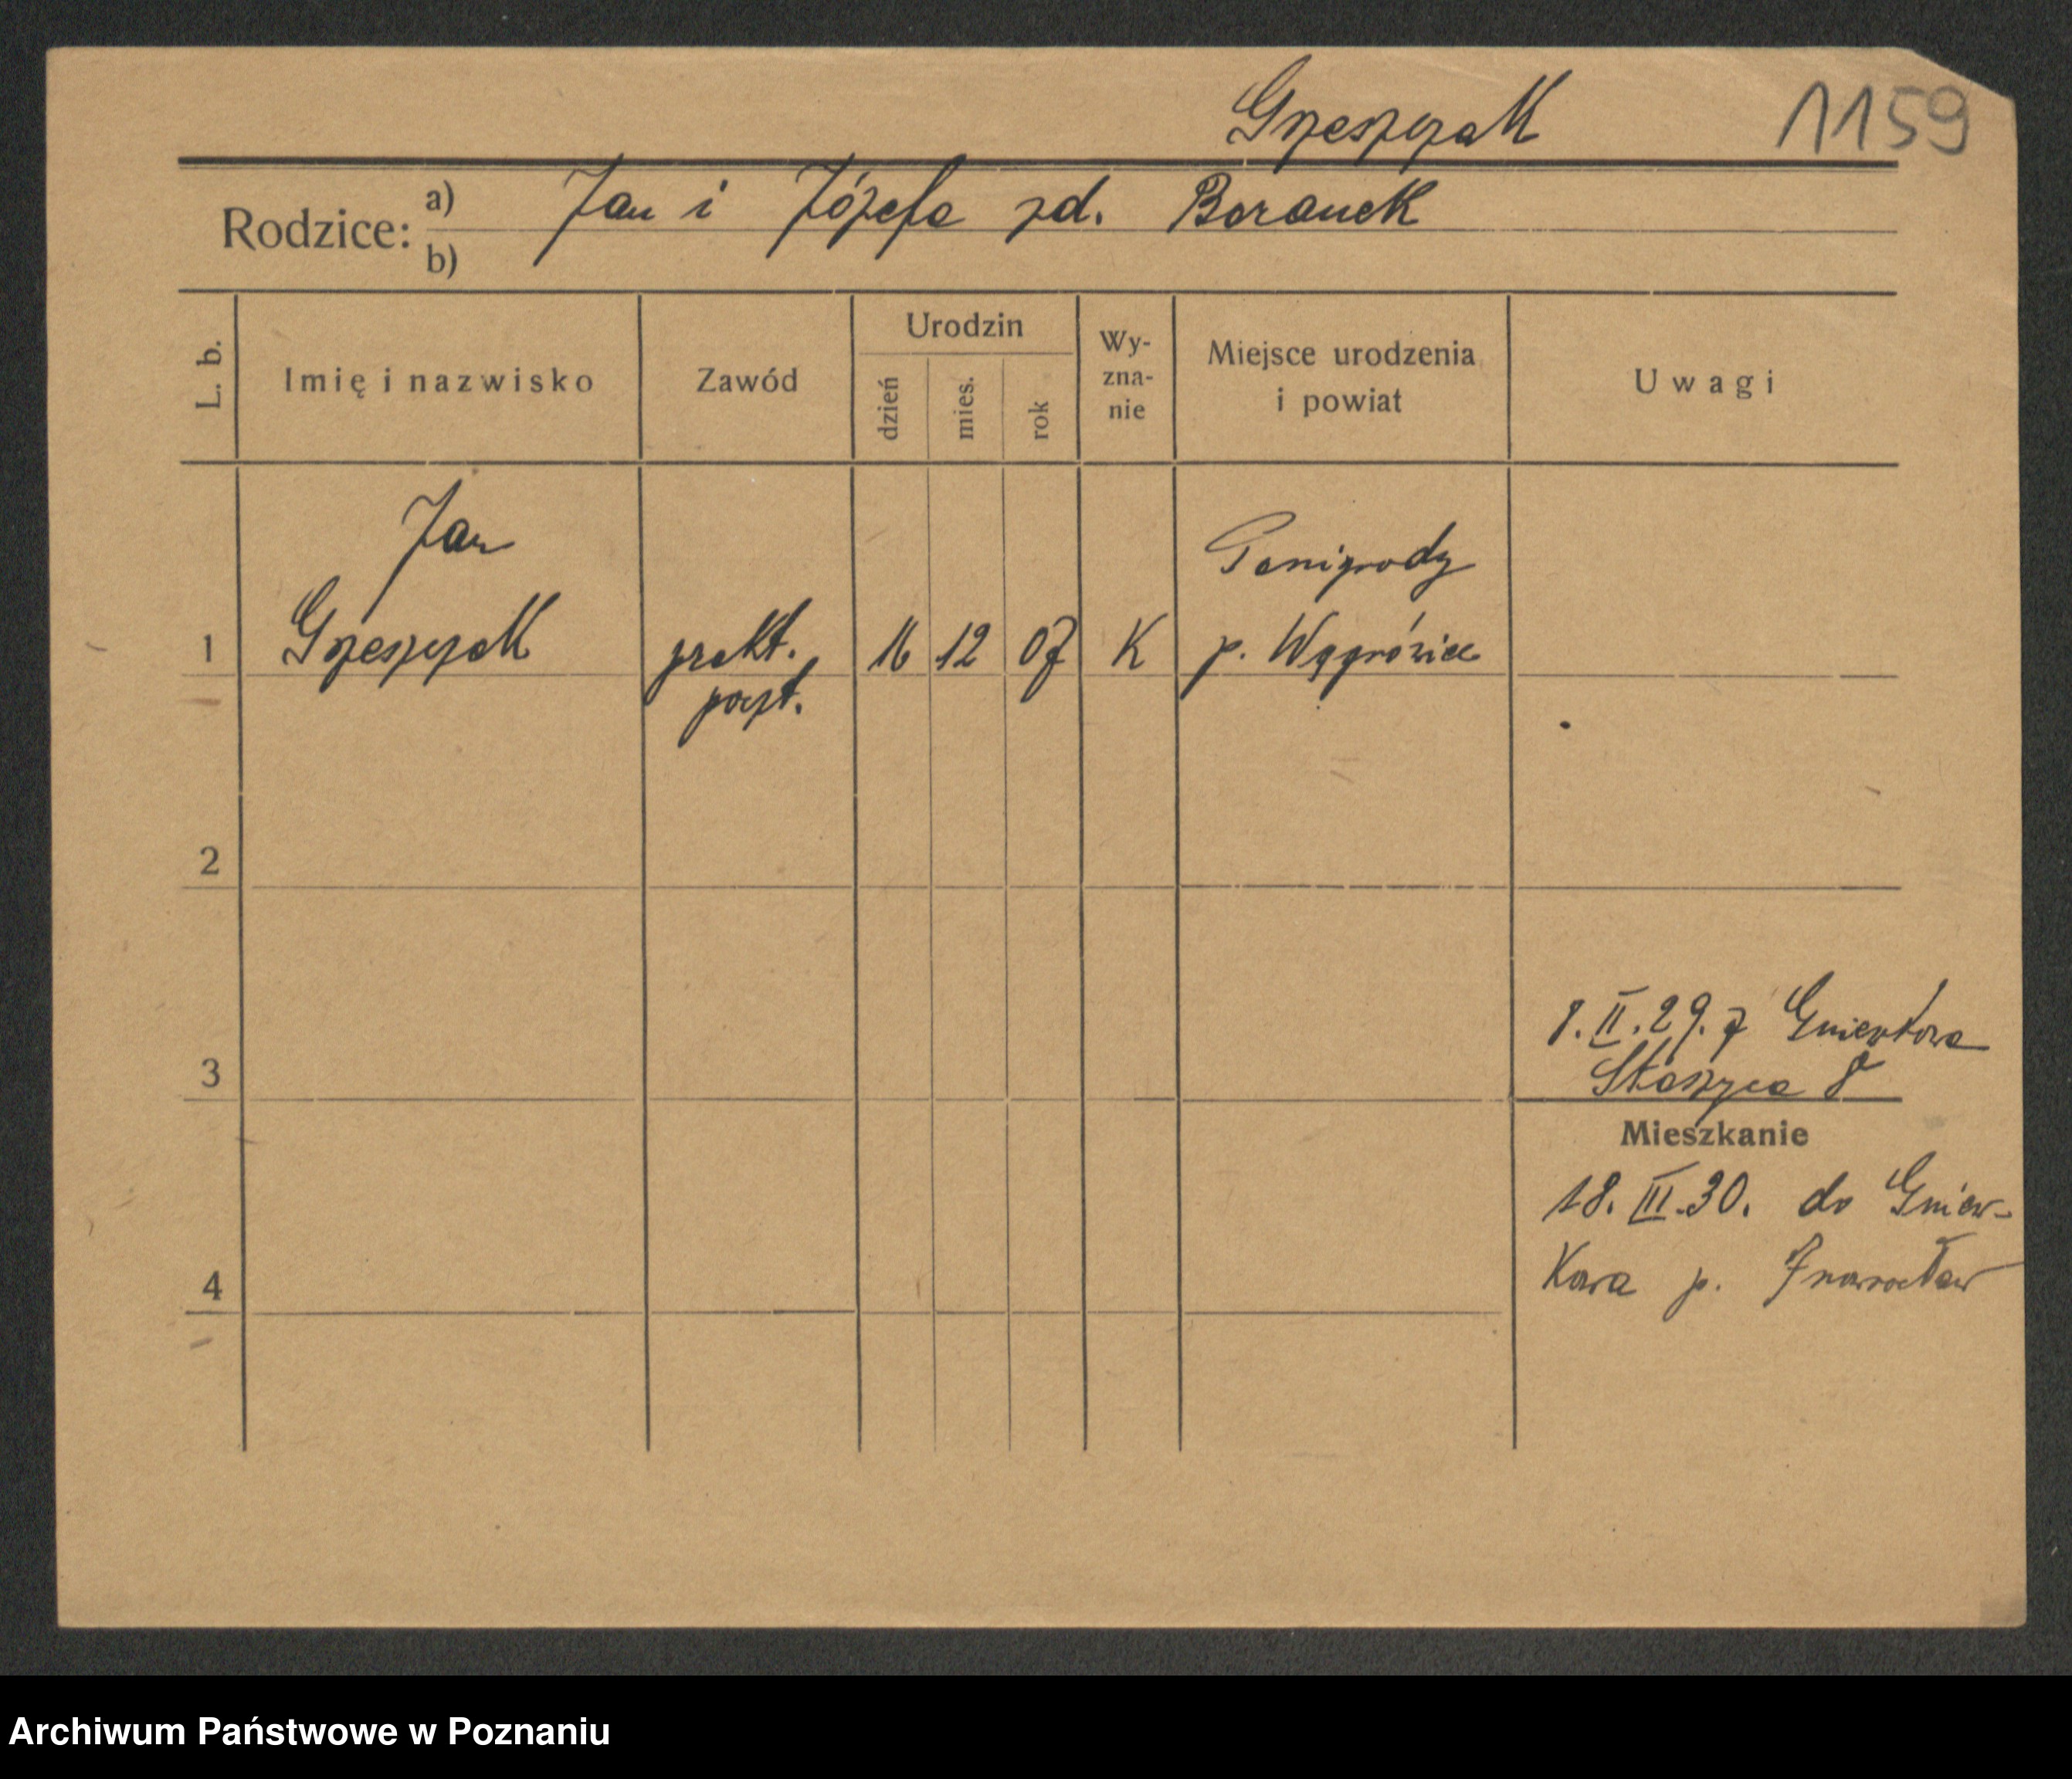 Grzeszczak
1159
Rodzice:
a) Jan i Józefa zd. Baranek
b)
L. b.
Imię i nazwisko
Zawód
Urodzin
dzień
mies.
rok
Wy-
zna-
nie
Miejsce urodzenia
i powiat
Uwagi
Jan
Panigrody
1 Grzeszczak prakt. 16 12 07 K p. Wągrówiec
poczt.
2
8.II.29. z Gniewkowa
Staszyca 8
3
Mieszkanie
18.III.30. do Gniew-
kowa p. Inowrocław
4
Archiwum Państwowe w Poznaniu